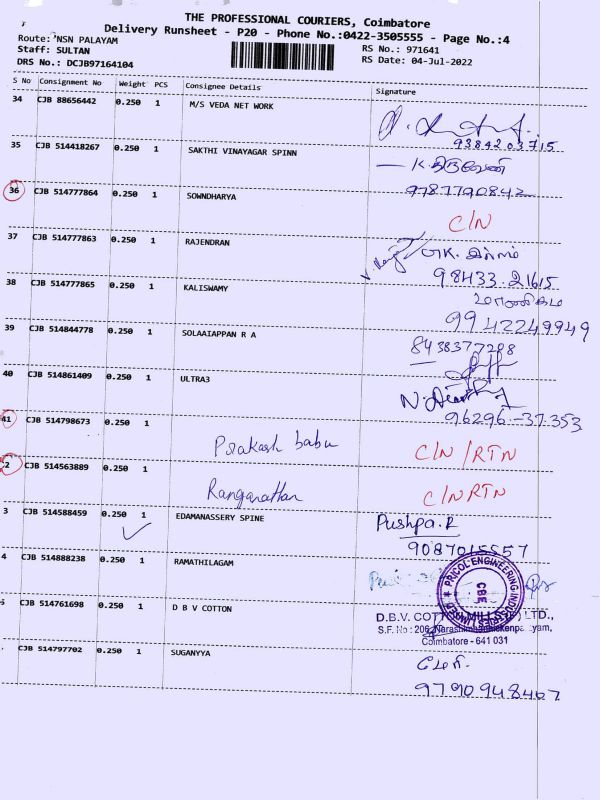 THE PROFESSIONAL COURIERS, Coimbatore
Delivery Runsheet - P20 - Phone No.:0422-3505555 - Page No.:4
Route: NSN PALAYAM
RS No.: 971641
Staff: SULTAN
RS Date: 04-Jul-2022
DRS No.: DCJB97164104
S No Consignment No Weight PCS Consignee Details Signature
34 CJB 88656442 0.250 1 M/S VEDA NET WORK
9384203715
35 CJB 514418267 0.250 1 SAKTHI VINAYAGAR SPINN
9787790842
36 CJB 514777864 0.250 1 SOWNDHARYA C/N
37 CJB 514777863 0.250 1 RAJENDRAN
98433 21615
38 CJB 514777865 0.250 1 KALISWAMY
9942249949
39 CJB 514844778 0.250 1 SOLAAIAPPAN R A
8438377298
40 CJB 514861409 0.250 1 ULTRA3
96296-37353
41 CJB 514798673 0.250 1 Prakash babu C/N/RTN
2 CJB 514563889 0.250 1 Ranganathan C/N RTN
3 CJB 514588459 0.250 1 EDAMANASSERY SPINE Pushpa.R
9087015557
4 CJB 514888238 0.250 1 RAMATHILAGAM
PRICOL ENGINEERING INDUSTRIES LIMITED
CBE
5 CJB 514761698 0.250 1 D B V COTTON
D.B.V. COTTON MILLS (P) LTD.,
S.F. No: 206, Narasimhanaickenpalayam,
Coimbatore - 641 031
CJB 514797702 0.250 1 SUGANYYA
9790948407